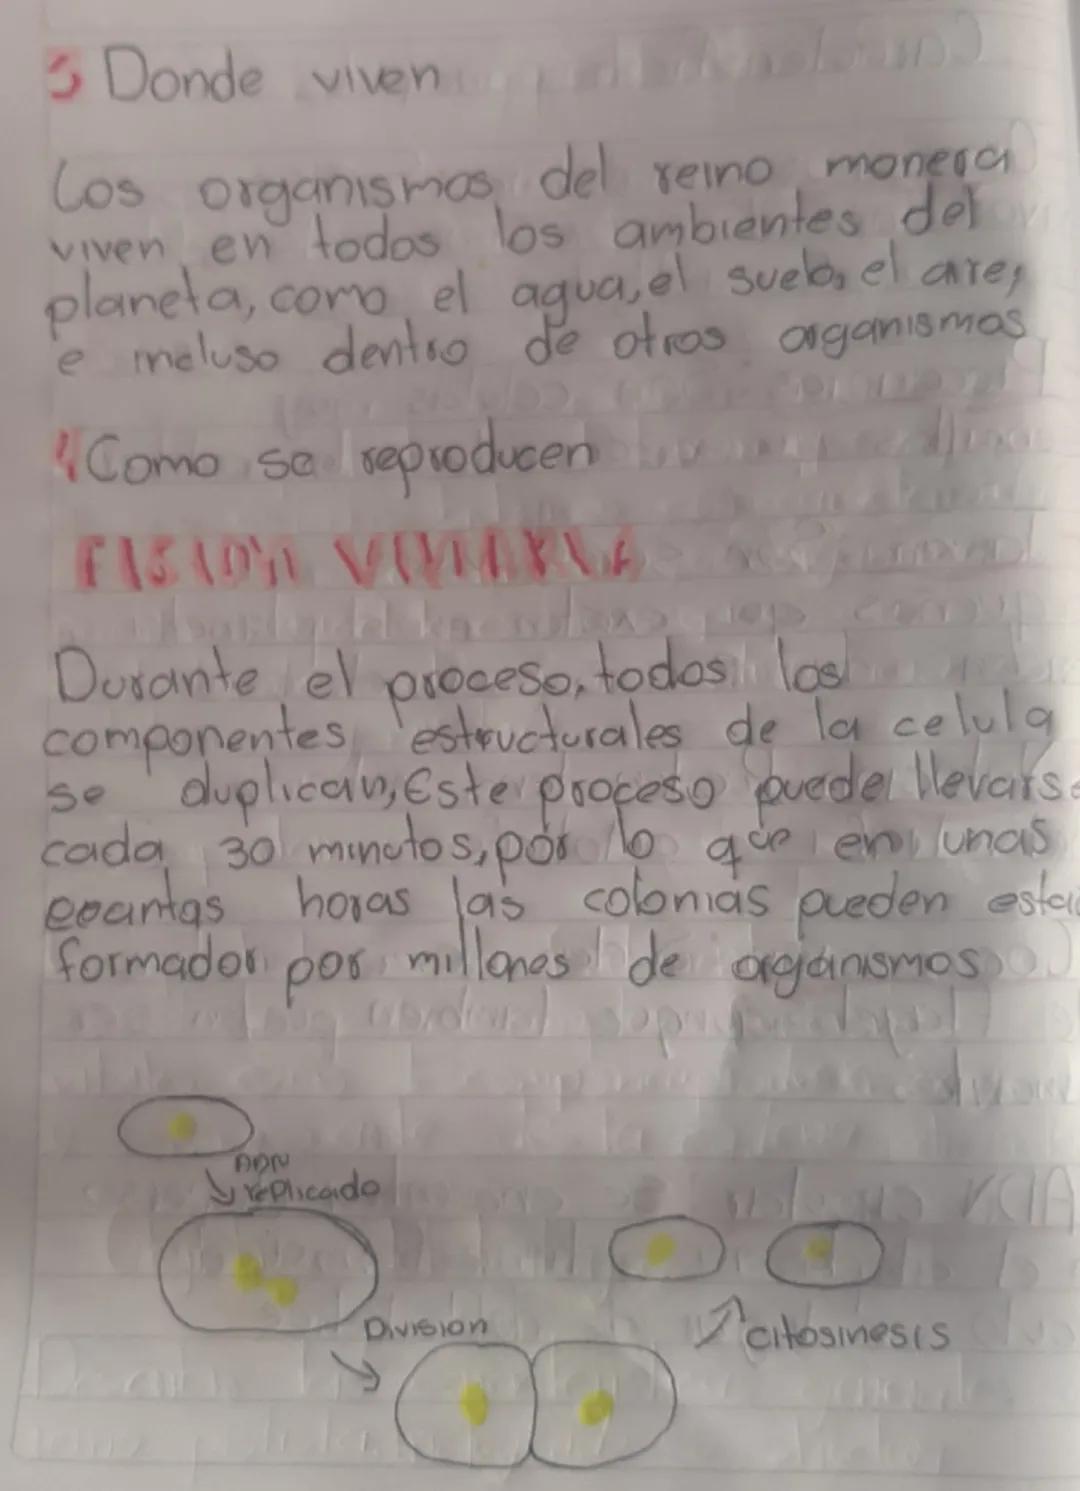 3 Donde viven
Los organismos del reino monera
viven en todos los ambientes del
planeta, como el agua, el suelo, el aire,
e incluso dentro de otros organismos
4 Como se reproducen
FISION VINARIA
Durante el proceso, todos los
componentes estructurales de la celula
se duplican, Este proceso puede llevarse
cada 30 minutos, por lo que en unas
horas las colonias pueden estar
formador por millones de organismos
ADN
replicado
Division
citosinesis